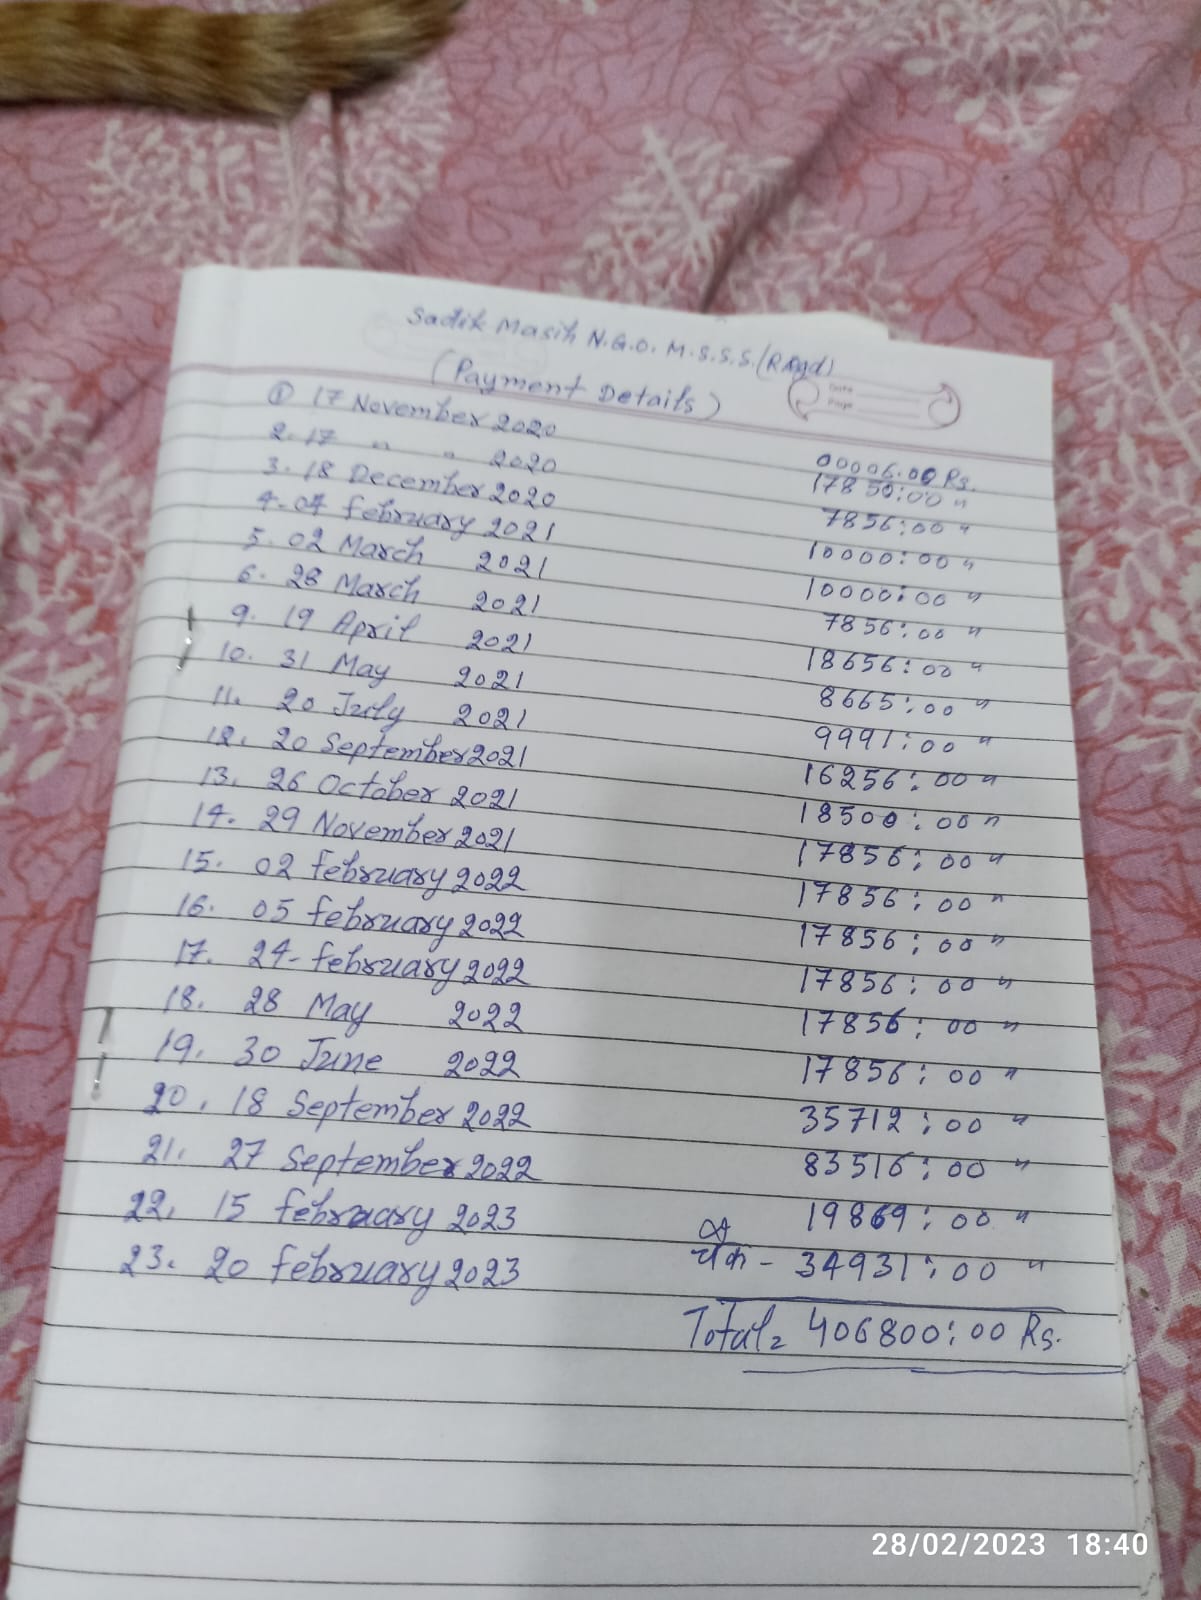 Sadik Masih N.G.O. M.S.S.S. (Regd)
(Payment Details)
Date
Page
① 17 November 2020 00006.00 Rs.
2. 17 " " 2020 17850:00 "
3. 18 December 2020 7856:00 "
4. 04 february 2021 10000:00 "
5. 02 March 2021 10000:00 "
6. 28 March 2021 7856:00 "
9. 19 April 2021 18656:00 "
10. 31 May 2021 8665:00 "
11. 20 July 2021 9991:00 "
12. 20 September 2021 16256:00 "
13. 26 October 2021 18500:00 "
14. 29 November 2021 17856:00 "
15. 02 february 2022 17856:00 "
16. 05 february 2022 17856:00 "
17. 24 february 2022 17856:00 "
18. 28 May 2022 17856:00 "
19. 30 June 2022 17856:00 "
20. 18 September 2022 35712:00 "
21. 27 September 2022 83516:00 "
22. 15 february 2023 19869:00 "
23. 20 february 2023 34931:00 "
Total = 406800:00 Rs.
28/02/2023 18:40